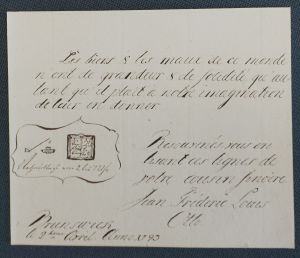 Les biens & les maux de ce monde
n'ont de grandeur & de solidité qu'au
tant qu'il plait a notre imagination
de leur en donner
Ressouvenés vous en
lisant ces lignes de
votre cousin sincère
Jean Fréderic Louis
Otto
Brunswick
le Avril Anno 1793